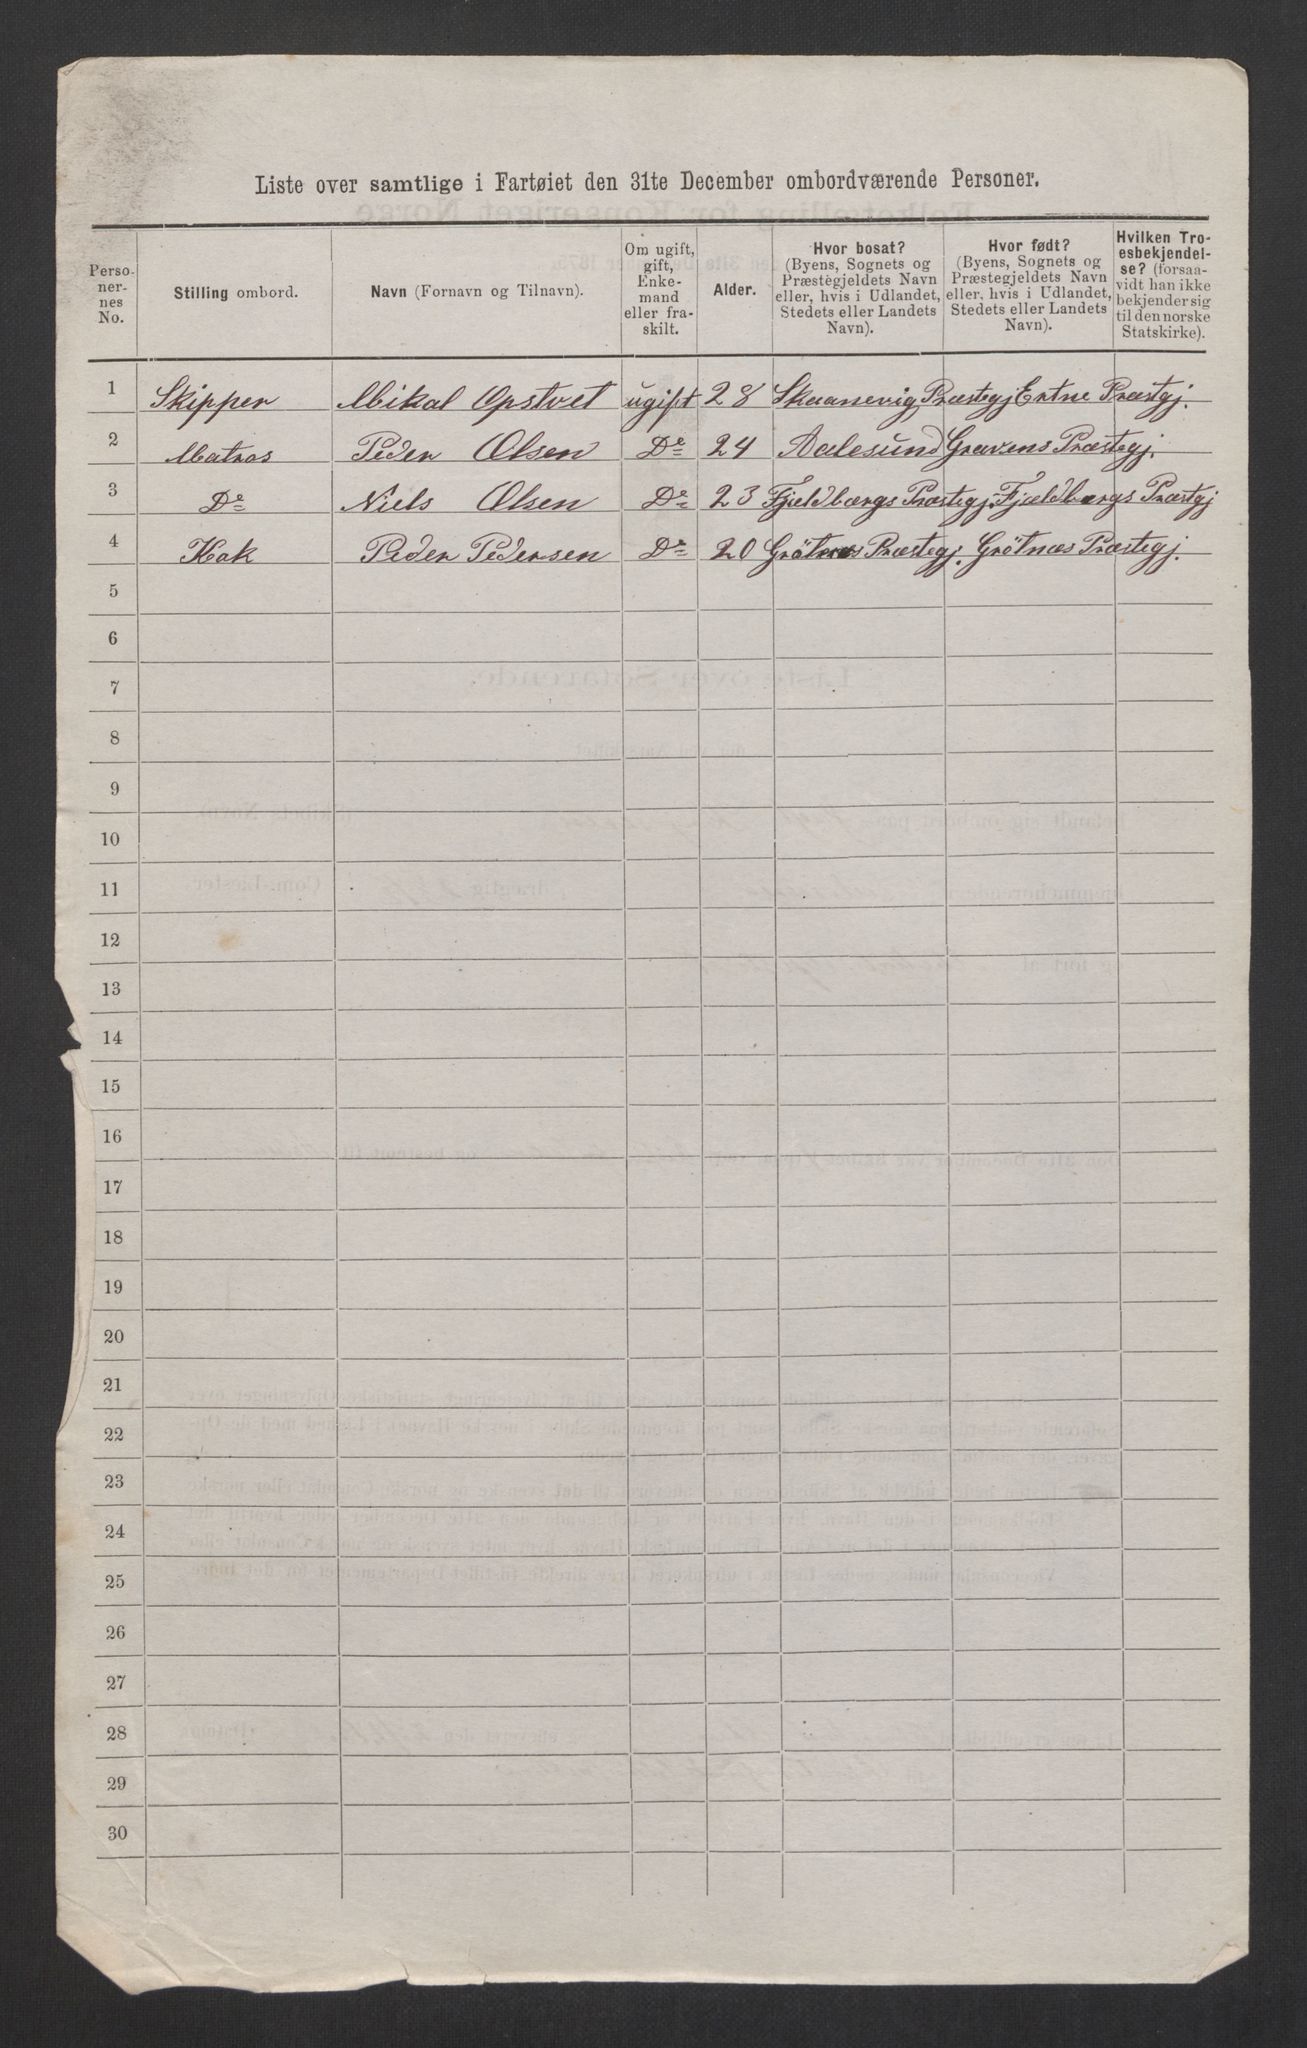 Liste over samtlige i Fartøiet den 31te December ombordværende Personer.
Perso-
ner-
nes
No.
Stilling ombord.
Navn (Fornavn og Tilnavn).
Om ugift,
gift,
Enke-
mand
eller fra-
skilt.
Alder.
Hvor bosat?
(Byens, Sognets og
Præstegjeldets Navn
eller, hvis i Udlandet,
Stedets eller Landets
Navn).
Hvor født?
(Byens, Sognets og
Præstegjeldets Navn
eller, hvis i Udlandet,
Stedets eller Landets
Navn).
Hvilken Tro-
esbekjendel-
se? (forsaa-
vidt han ikke
bekjender sig
til den norske
Statskirke).
1 Skipper Mikal Opstvet ugift 28 Skaanevig Præstegj Entne Præstgj.
2 Matros Peder Olsen Do 24 Aalesund Gravens Præstegj.
3 Do Niels Olsen Do 23 Fjeldbergs Præstegj. Fjældbergs Præstgj
4 Kok Peder Pedersen Do 20 Grötnes Præstegj. Grötnæs Præstegj.
5
6
7
8
9
10
11
12
13
14
15
16
17
18
19
20
21
22
23
24
25
26
27
28
29
30